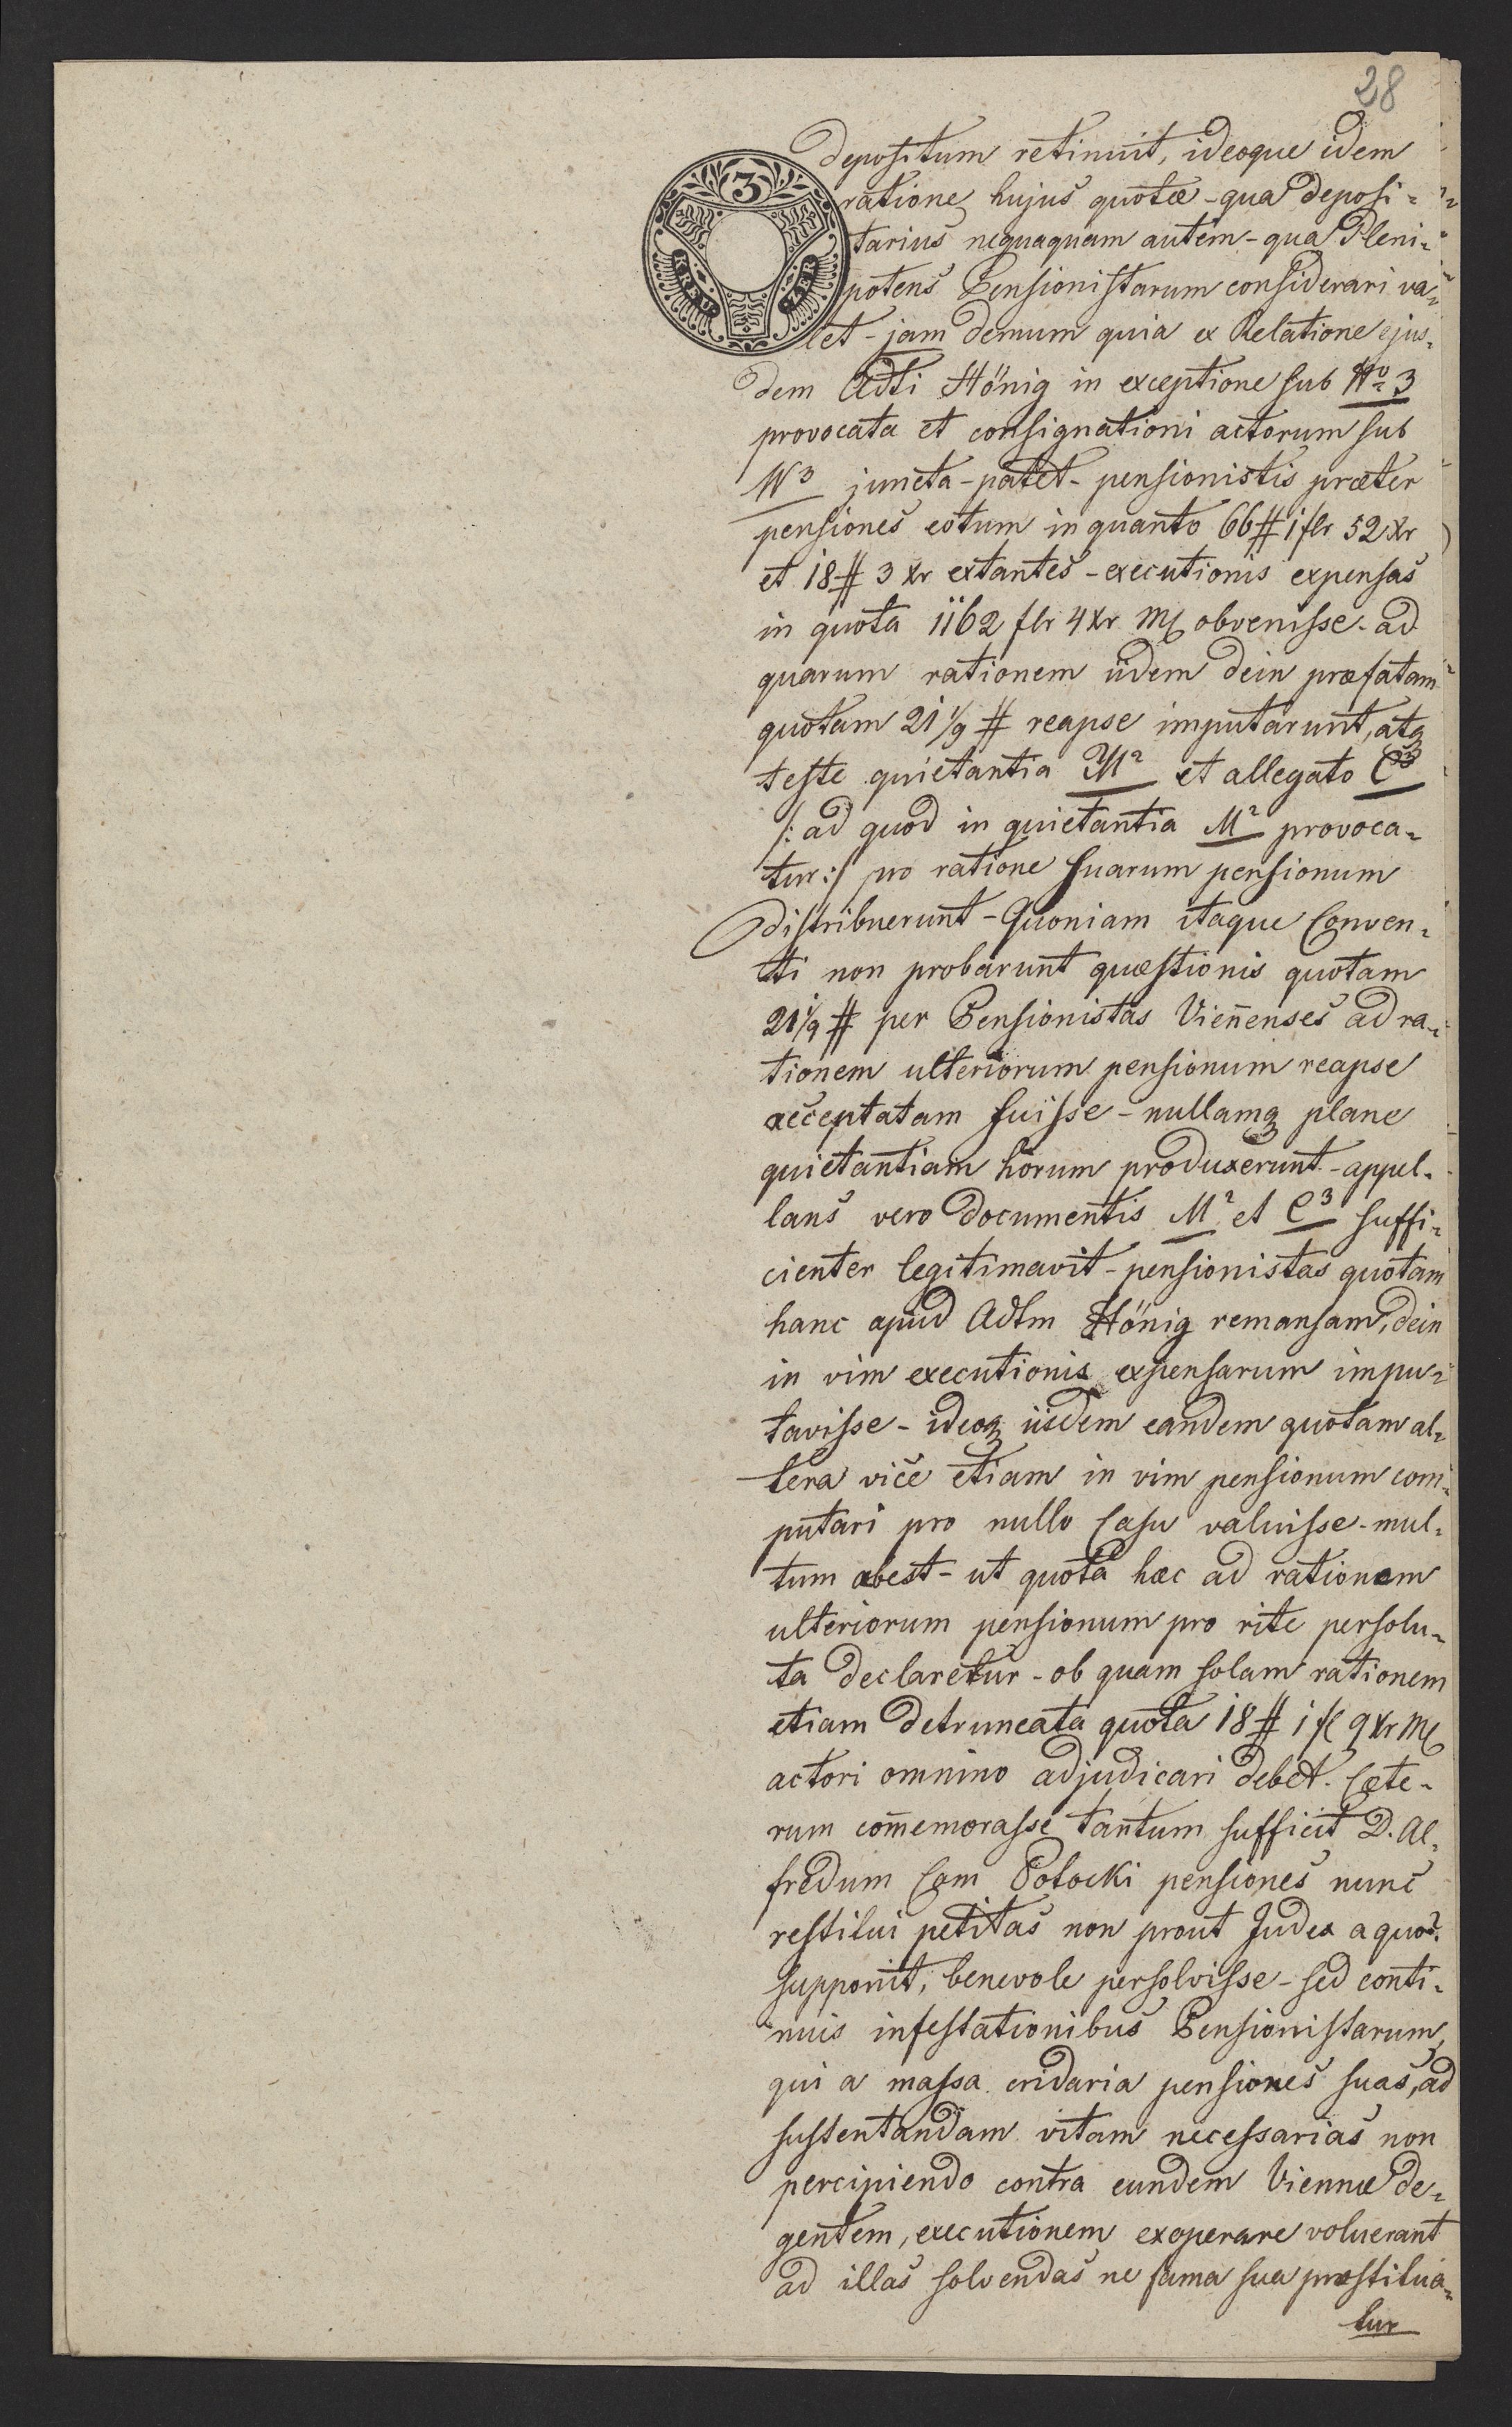 28
depositum retinuit, ideoque idem
3
ratione hujus quotæ - qua deposi=
tarius nequaquam autem - qua Pleni=
KREU ZER
potens Pensionistarum considerari va=
let - jam demum quia ex Relatione ejus=
dem Adti Hönig in exceptione sub No 3
provocata et consignationi actorum sub
N3 juncta - patet - pensionistis præter
pensiones eotum in quanto 66 # 1 flr 52 xr
et 18 # 3 xr extantes - executionis expensas
in quota 1162 flr 4 xr M obvenisse - ad
quarum rationem iidem dein præfatam
quotam 21 1/9 # reapse imputarunt, atq
teste quietantia M2 et allegato C3
/: ad quod in quietantia M2 provoca=
tur :/ pro ratione suarum pensionum
distribuerunt - Quoniam itaque Conven=
ti non probarunt quæstionis quotam
21 1/9 # per Pensionistas Vieñenses ad ra=
tionem ulteriorum pensionum reapse
acceptatam fuisse - nullamq plane
quietantiam horum produxerunt - appel=
lans vero documentis M2 et C3 suffi=
cienter legitimavit - pensionistas quotam
hanc apud Adtm Hönig remansam, dein
in vim executionis expensarum impu=
tavisse - ideoq iisdem eandem quotam al=
tera vice etiam in vim pensionum com=
putari pro nullo Casu valuisse - mul=
tum abest - ut quota hæc ad rationem
ulteriorum pensionum pro rite persolu=
ta declaretur - ob quam solam rationem
etiam detruncata quota 18 # 1 fl 9 xr M
actori omnino adjudicari debet. Cæte=
rum com̄emorasse tantum sufficit D. Al=
fredum Com Potocki pensiones nunc
restitui petitas non prout Judex a quo
supponit, benevole persolvisse - sed conti=
nuis infestationibus Pensionistarum,
qui a massa cridaria pensiones suas, ad
sustentandam vitam necessarias non
percipiendo contra eundem Viennæ de=
gentem, executionem exoperare voluerant
ad illas solvendas ne fama sua prostitua=
tur